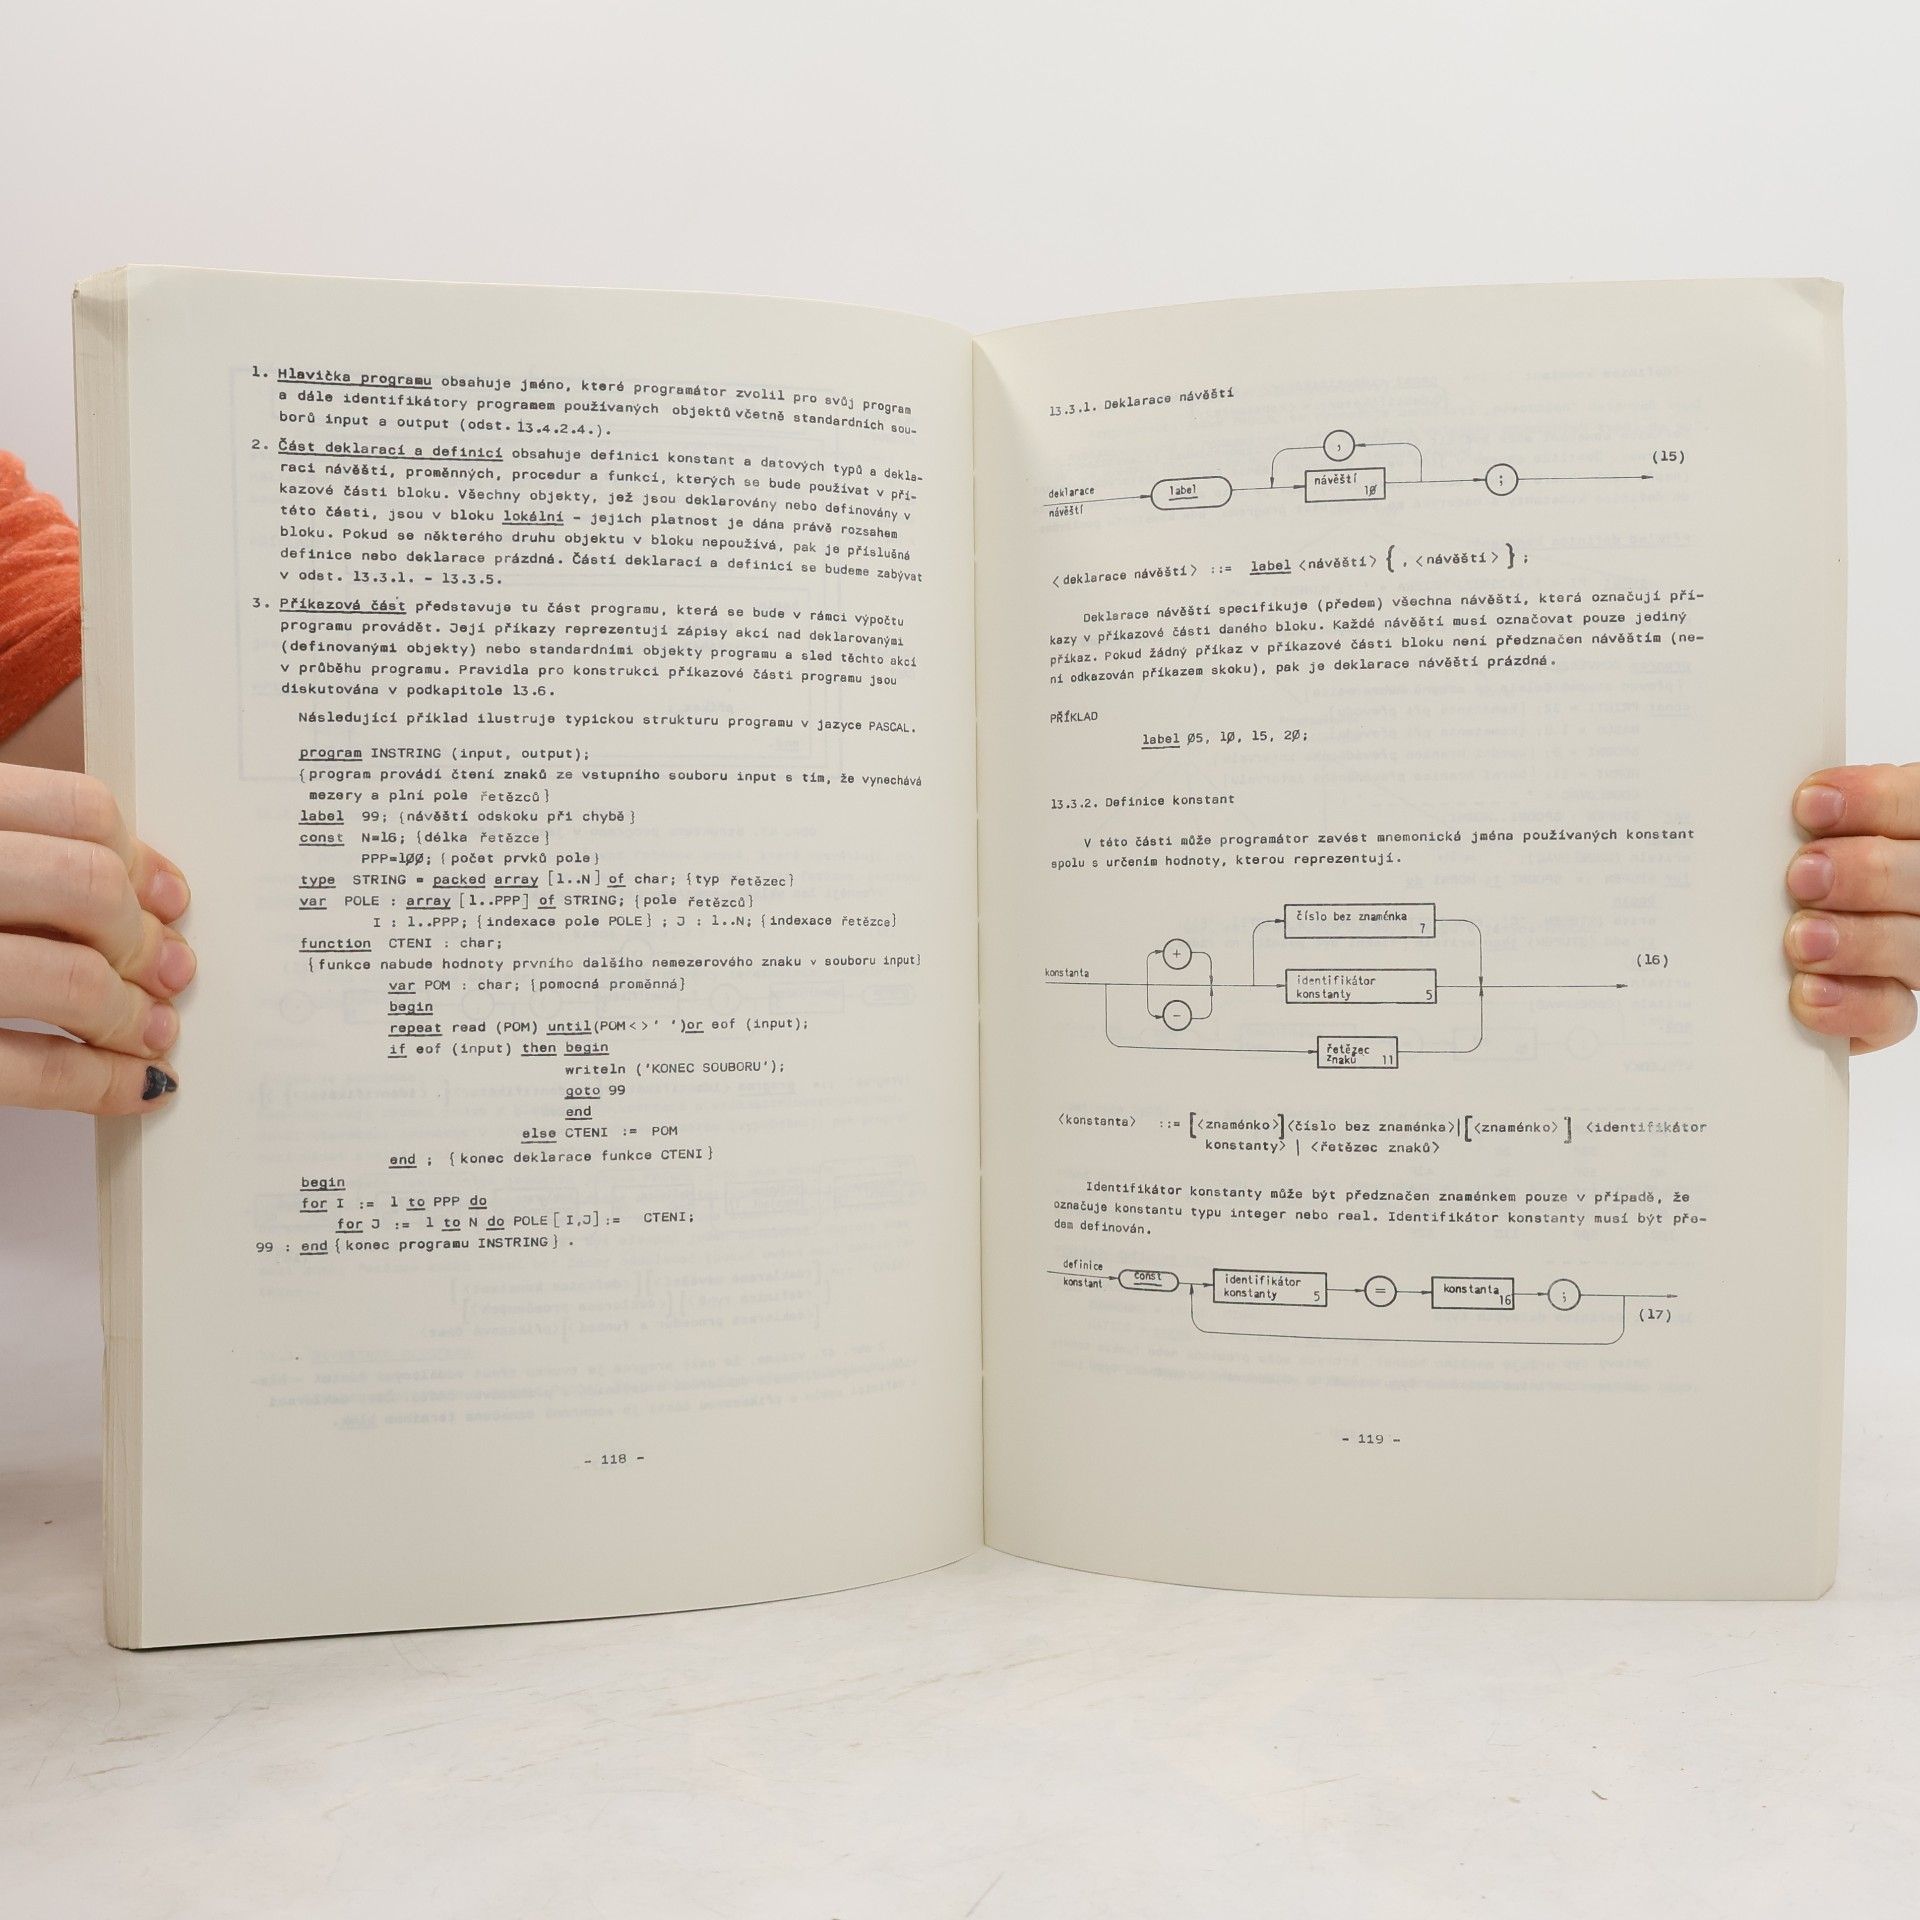 1. Hlavička programu obsahuje jméno, které programátor zvolil pro svůj program
a dále identifikátory programem používaných objektů včetně standardních sou-
borů input a output (odst. 13.4.2.4.).
2. Část deklarací a definicí obsahuje definici konstant a datových typů a dekla-
raci návěští, proměnných, procedur a funkcí, kterých se bude používat v pří-
kazové části bloku. Všechny objekty, jež jsou deklarovány nebo definovány v
této části, jsou v bloku lokální - jejich platnost je dána právě rozsahem
bloku. Pokud se některého druhu objektu v bloku nepoužívá, pak je příslušná
definice nebo deklarace prázdná. Částí deklarací a definicí se budeme zabývat
v odst. 13.3.1. - 13.3.5.
3. Příkazová část představuje tu část programu, která se bude v rámci výpočtu
programu provádět. Její příkazy reprezentují zápisy akcí nad deklarovanými
(definovanými objekty) nebo standardními objekty programu a sled těchto akcí
v průběhu programu. Pravidla pro konstrukci příkazové části programu jsou
diskutována v podkapitole 13.6.
Následující příklad ilustruje typickou strukturu programu v jazyce PASCAL.
program INSTRING (input, output);
{program provádí čtení znaků ze vstupního souboru input s tím, že vynechává
mezery a plní pole řetězců}
label 99; {návěští odskoku při chybě}
const N=16; {délka řetězce}
PPP=1ØØ; {počet prvků pole}
type STRING = packed array [1..N] of char; {typ řetězec}
var POLE : array [1..PPP] of STRING; {pole řetězců}
I : 1..PPP; {indexace pole POLE} ; J : 1..N; {indexace řetězce}
function CTENI : char;
{funkce nabude hodnoty prvního dalšího nemezerového znaku v souboru input}
var POM : char; {pomocná proměnná}
begin
repeat read (POM) until(POM<>' ')or eof (input);
if eof (input) then begin
writeln ('KONEC SOUBORU');
goto 99
end
else CTENI := POM
end ; {konec deklarace funkce CTENI}
begin
for I := 1 to PPP do
for J := 1 to N do POLE[I,J]:= CTENI;
99 : end{konec programu INSTRING} .
- 118 -
13.3.1. Deklarace návěští
deklarace
návěští
label
,
návěští
1Ø
;
(15)
<deklarace návěští> ::= label <návěští> { , <návěští> } ;
Deklarace návěští specifikuje (předem) všechna návěští, která označují pří-
kazy v příkazové části daného bloku. Každé návěští musí označovat pouze jediný
příkaz. Pokud žádný příkaz v příkazové části bloku není předznačen návěštím (ne-
ní odkazován příkazem skoku), pak je deklarace návěští prázdná.
PŘÍKLAD
label Ø5, 1Ø, 15, 2Ø;
13.3.2. Definice konstant
V této části může programátor zavést mnemonická jména používaných konstant
spolu s určením hodnoty, kterou reprezentují.
konstanta
+
-
číslo bez znaménka
7
identifikátor
konstanty 5
řetězec
znaků 11
(16)
<konstanta> ::= [<znaménko>]<číslo bez znaménka>|[<znaménko>] <identifikátor
konstanty> | <řetězec znaků>
Identifikátor konstanty může být předznačen znaménkem pouze v případě, že
označuje konstantu typu integer nebo real. Identifikátor konstanty musí být pře-
dem definován.
definice
konstant
const
identifikátor
konstanty 5
=
konstanta
16
;
(17)
- 119 -